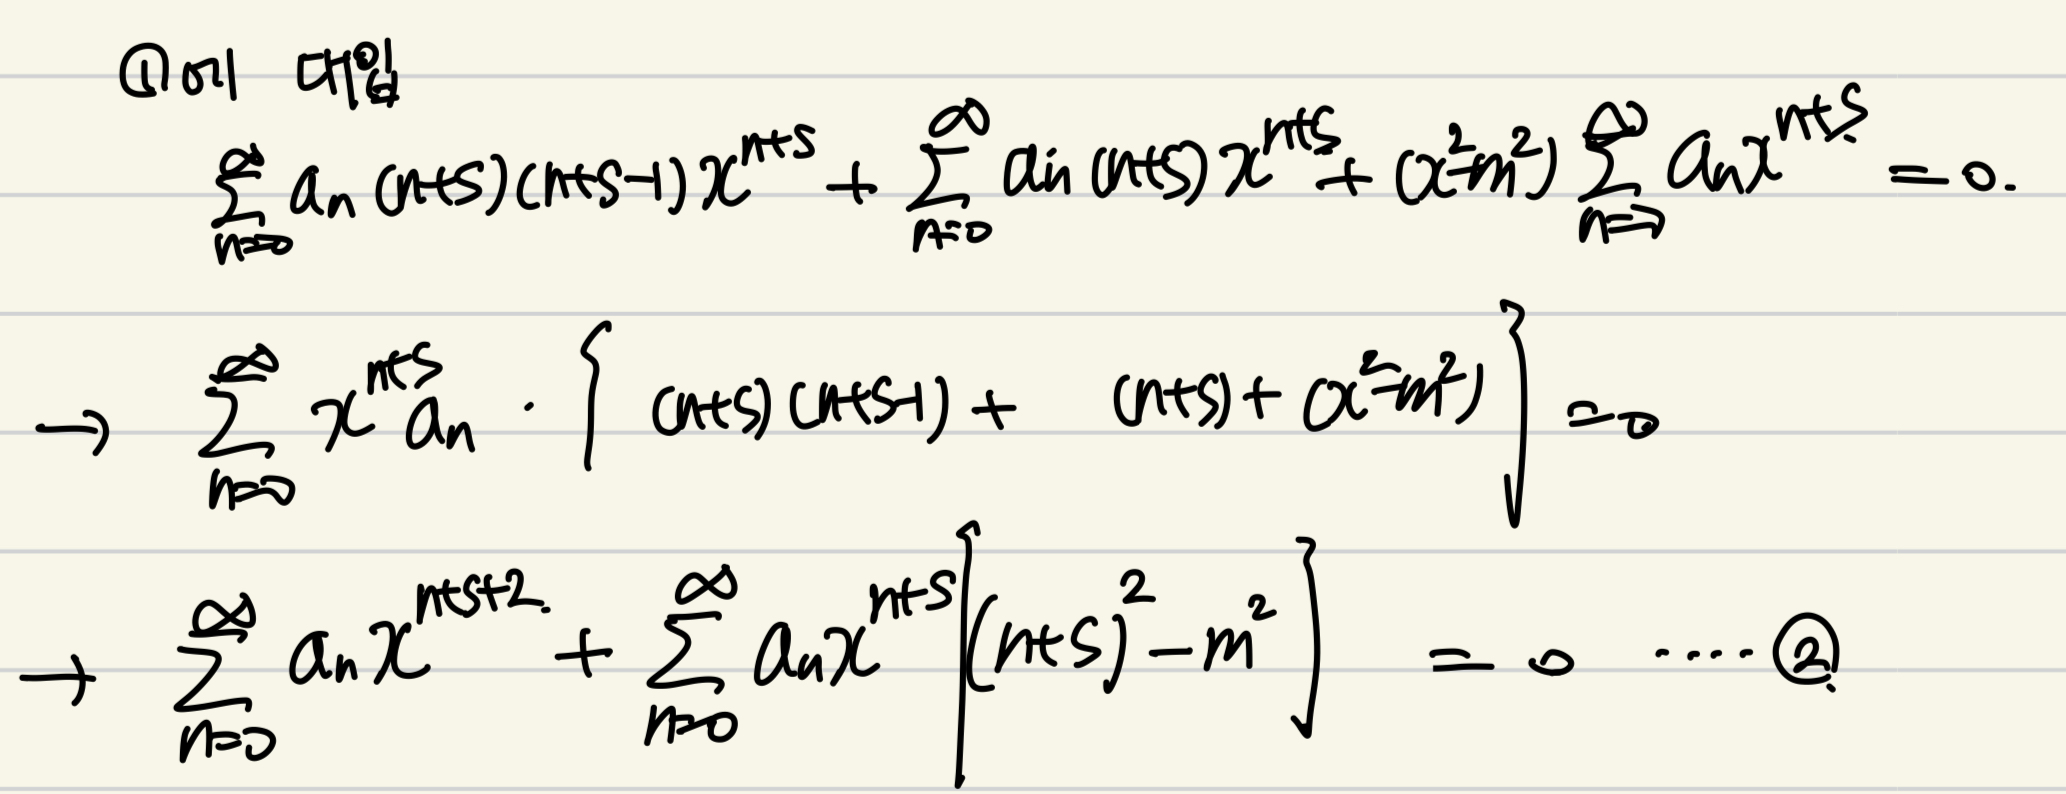 ①에 대입
∑_{n=0}^{∞} aₙ (n+s)(n+s-1) x^{n+s} + ∑_{n=0}^{∞} aₙ (n+s) x^{n+s} + (x²-m²) ∑_{n=0}^{∞} aₙ x^{n+s} = 0.
→ ∑_{n=0}^{∞} x^{n+s} aₙ · { (n+s)(n+s-1) + (n+s) + (x²-m²) } = 0
→ ∑_{n=0}^{∞} aₙ x^{n+s+2} + ∑_{n=0}^{∞} aₙ x^{n+s} [(n+s)² - m²] = 0 ····· ②